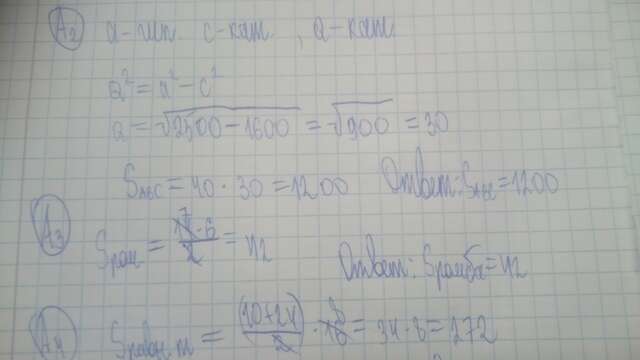 A2 а-гип. с-кат., а-кат.
a² = a² - c²
a = √2500-1600 = √900 = 30
S ABC = 40 · 30 = 1200 Ответ: S ABC = 1200
A3 Sром = 14·6/2 = 42 7
Ответ: Sромба = 42
A4 (10+24)/2 · 16 = 34 · 8 = 272 8